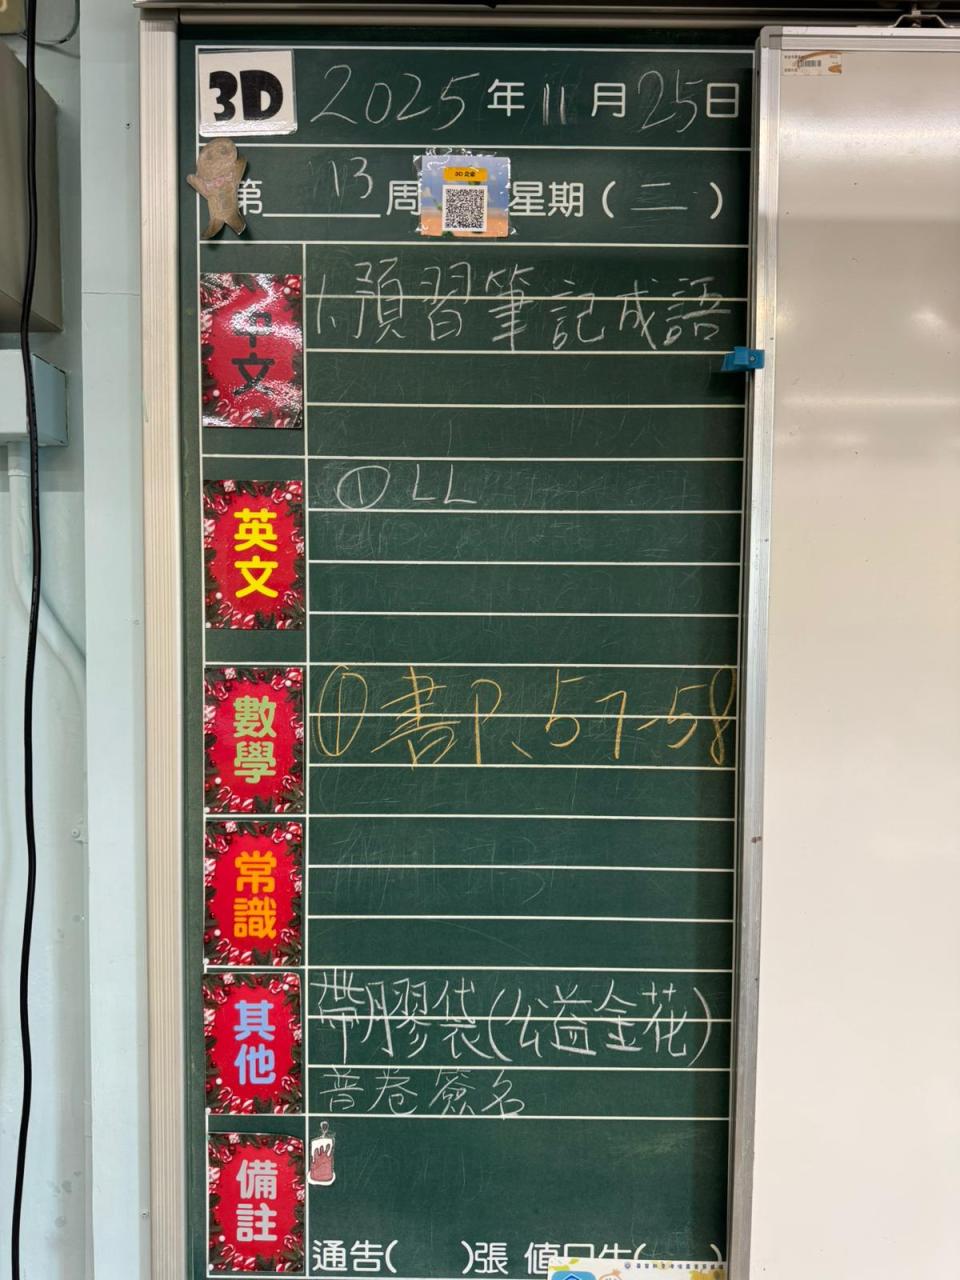 3D 2025年11月25日
第13周 星期(二)
中文
1.預習筆記成語
英文
① LL
數學
①書P.57-58
常識
其他
帶膠袋(公益金花)
普卷簽名
備註
通告( )張 值日生( )